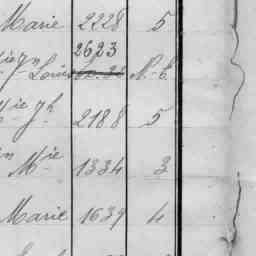 Marie 2228 5
2623
Louise N. b.
Mie Jh 2188 5
Mie 1334 3
Marie 1639 4